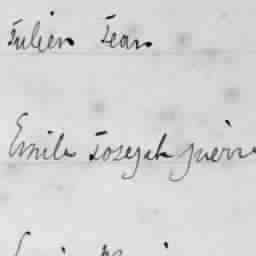 Julien Jean
Emile Joseph pierre